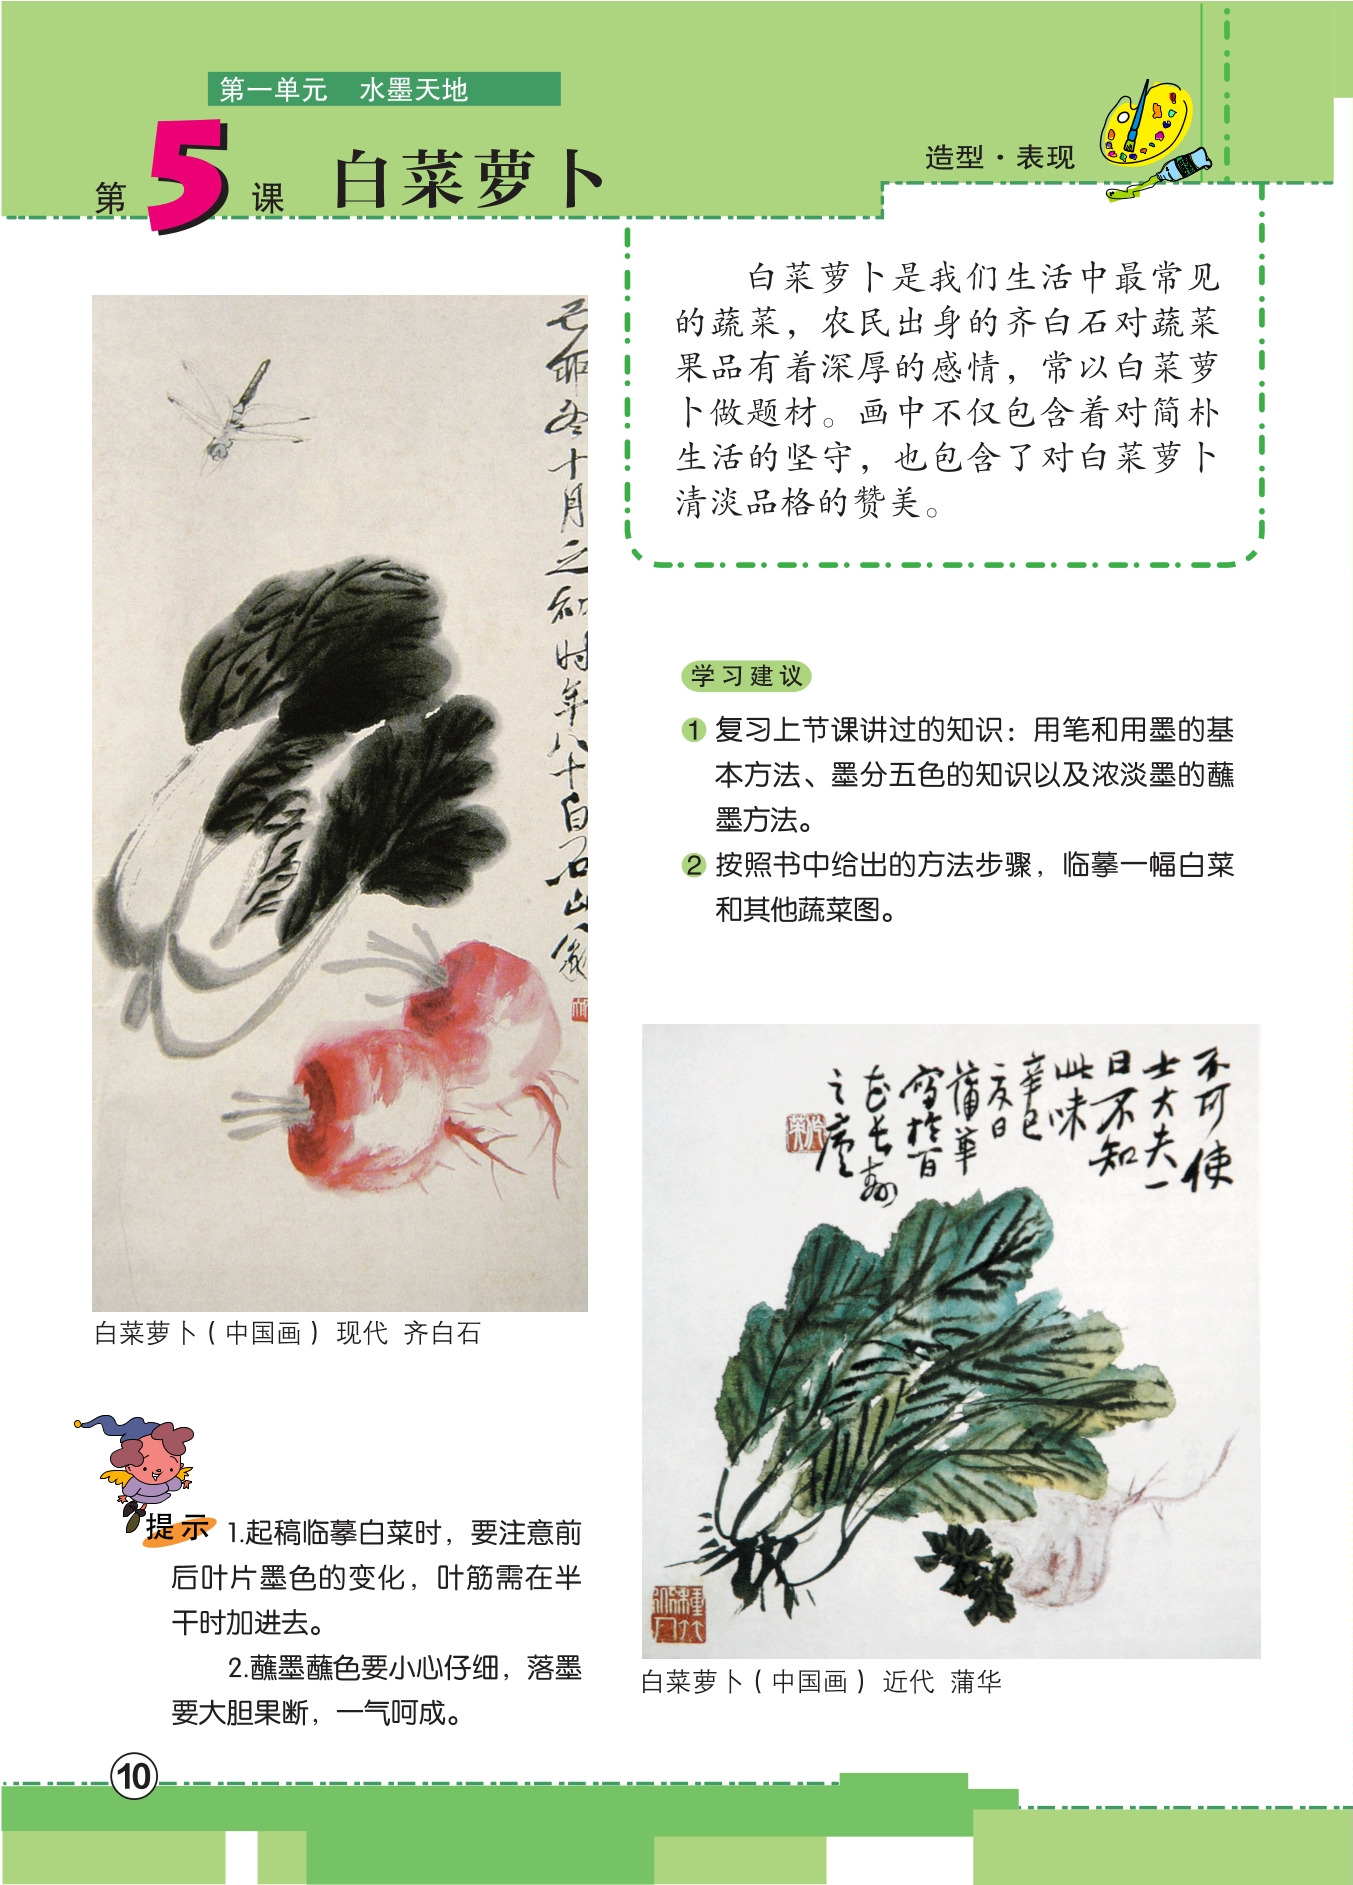 第一单元 水墨天地
第5课 白菜萝卜
造型·表现
白菜萝卜是我们生活中最常见
的蔬菜，农民出身的齐白石对蔬菜
果品有着深厚的感情，常以白菜萝
卜做题材。画中不仅包含着对简朴
生活的坚守，也包含了对白菜萝卜
清淡品格的赞美。
己卯冬十月之初时年八十白石山翁
白菜萝卜（中国画） 现代 齐白石
学习建议
1 复习上节课讲过的知识：用笔和用墨的基
本方法、墨分五色的知识以及浓淡墨的蘸
墨方法。
2 按照书中给出的方法步骤，临摹一幅白菜
和其他蔬菜图。
不可使
士大夫一
日不知
此味
辛巳
二友日
蒲华
写於百
花长寿
之庐
白菜萝卜（中国画） 近代 蒲华
提示
1.起稿临摹白菜时，要注意前
后叶片墨色的变化，叶筋需在半
干时加进去。
2.蘸墨蘸色要小心仔细，落墨
要大胆果断，一气呵成。
10